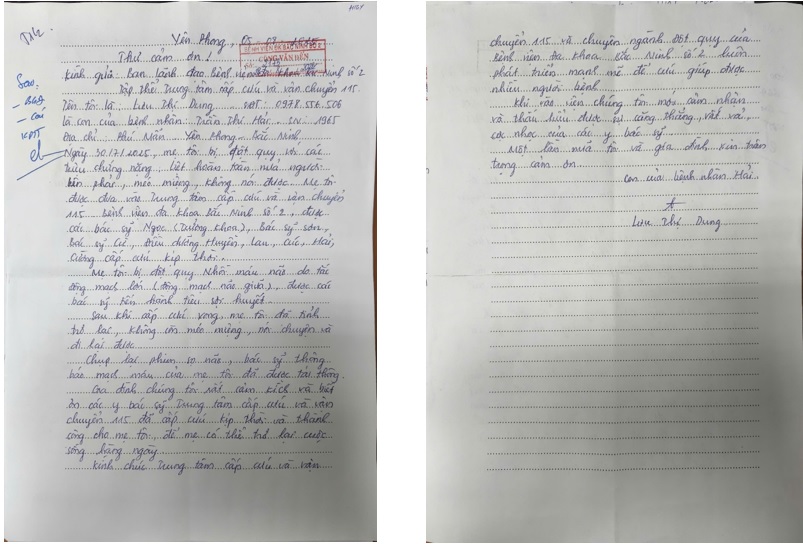 Yên Phong, 05 - 09 - 2025
BỆNH VIỆN ĐA KHOA
CÔNG VĂN ĐẾN
Thư cảm ơn!
Kính gửi ban lãnh đạo bệnh viện đa khoa Bắc Ninh số 2
Tập thể trung tâm cấp cứu và vận chuyển 115.
Tên tôi là: Lưu Thị Dung. SĐT: 0978.556.506
là con của bệnh nhân: Trần Thị Hải. SN: 1965
Địa chỉ: Phú Mẫn - Yên Phong - Bắc Ninh
Sao:
Ngày 30/7/2025, mẹ tôi bị đột quỵ, với các
triệu chứng nặng, liệt hoàn toàn nửa người
bên phải, méo miệng, không nói được. Mẹ tôi
được đưa vào Trung tâm cấp cứu và vận chuyển
115 bệnh viện đa khoa Bắc Ninh số 2, được
các bác sỹ Ngọc (Trưởng khoa), Bác sỹ Sơn,
Bác sỹ Cử, Điều dưỡng Huyền, Lan, Cúc, Hải,
Cường cấp cứu kịp thời.
Mẹ tôi bị đột quỵ Nhồi máu não do tắc
động mạch lớn (động mạch não giữa), được các
bác sỹ tiến hành tiêu sợi huyết.
Sau khi cấp cứu xong, mẹ tôi đã tỉnh
trở lại, không còn méo miệng, nói chuyện và
đi lại được.
Chụp lại phim sọ não, bác sỹ thông
báo mạch máu của mẹ tôi đã được tái thông.
Gia đình chúng tôi rất cảm kích và biết
ơn các y bác sỹ Trung tâm cấp cứu và vận
chuyển 115 đã cấp cứu kịp thời và thành
công cho mẹ tôi, để mẹ có thể trở lại cuộc
sống hàng ngày.
Kính chúc Trung tâm cấp cứu và vận
chuyển 115 và chuyên ngành Đột quỵ của
bệnh viện đa khoa Bắc Ninh số 2 luôn
phát triển mạnh mẽ để cứu giúp được
nhiều người bệnh.
Khi vào viện chúng tôi mới cảm nhận
và thấu hiểu được sự căng thẳng, vất vả,
cực nhọc của các y bác sỹ.
Một lần nữa tôi và gia đình xin trân
trọng cảm ơn.
Con của bệnh nhân Hải
Lưu Thị Dung